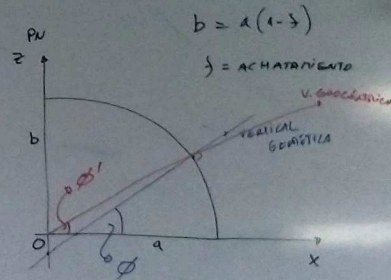 b = a (1-f)
PN
Z
f = ACHATAMIENTO
V. GEOCÉNTRICA
VERTICAL
GEODÉTICA
b
ϕ'
O
a
X
ϕ